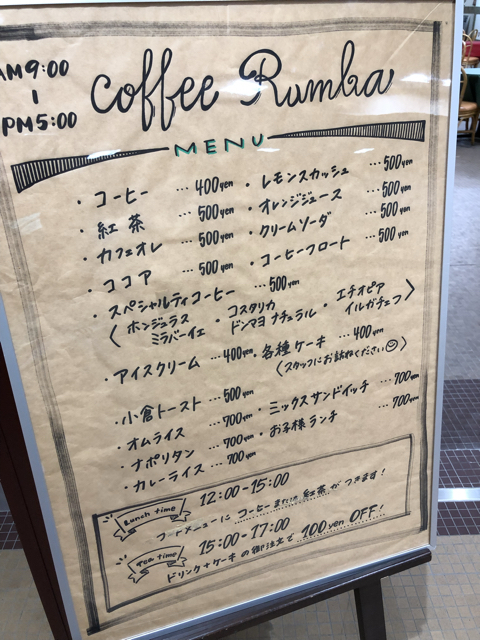 AM 9:00
|
PM 5:00
coffee Rumba
MENU
・コーヒー … 400yen
・紅茶 … 500yen
・カフェオレ … 500yen
・ココア … 500yen
・レモンスカッシュ … 500yen
・オレンジジュース … 500yen
・クリームソーダ … 500yen
・コーヒーフロート … 500yen
・スペシャルティコーヒー … 500yen
〈ホンジュラス ミラバーイェ ・コスタリカ ドンマヨ ナチュラル ・エチオピア イルガチェフ〉
・アイスクリーム … 400yen
・各種ケーキ … 400yen
〈スタッフにお訪ねください〉
・小倉トースト … 500yen
・オムライス … 700yen
・ナポリタン … 700yen
・カレーライス … 700yen
・ミックスサンドイッチ … 700yen
・お子様ランチ … 700yen
Lunch time 12:00-15:00
フードメニューに コーヒー または 紅茶 がつきます!
Tea time 15:00-17:00
ドリンク+ケーキ の御注文で 100yen OFF!